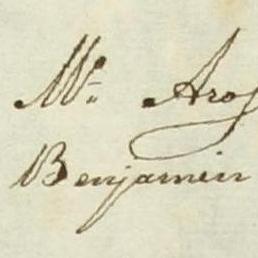 Mr. Aros
Benjamin